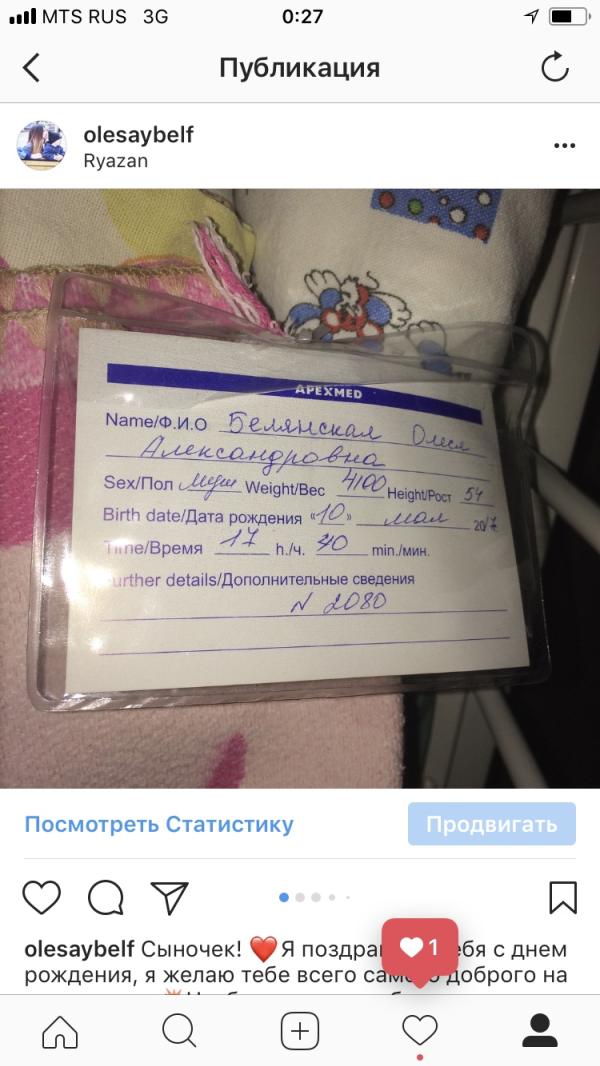 MTS RUS 3G 0:27
Публикация
olesaybelf
Ryazan
APEXMED
Name/Ф.И.О Белянская Олеся
Александровна
Sex/Пол Weight/Вес 4100 Height/Рост 54
Birth date/Дата рождения «10» мая 2017
Time/Время 17 h./ч. 40 min./мин.
urther details/Дополнительные сведения
N 2080
Посмотреть Статистику Продвигать
olesaybelf Сыночек! ❤️ Я с днем
1
рождения, я желаю тебе всего доброго на